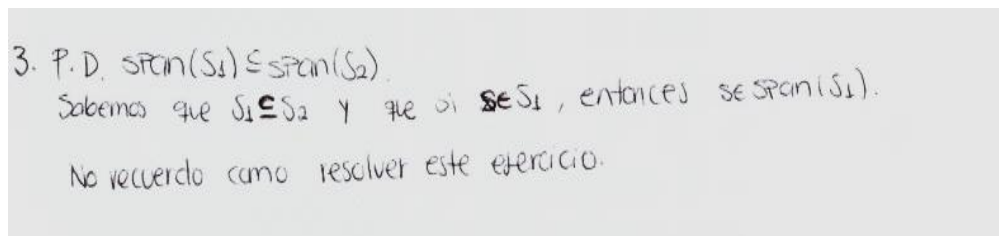 3. P.D. span(S₁) ⊆ span(S₂).
Sabemos que S₁ ⊆ S₂ y que si s∈S₁, entonces s∈ span(S₁).
No recuerdo como resolver este ejercicio.